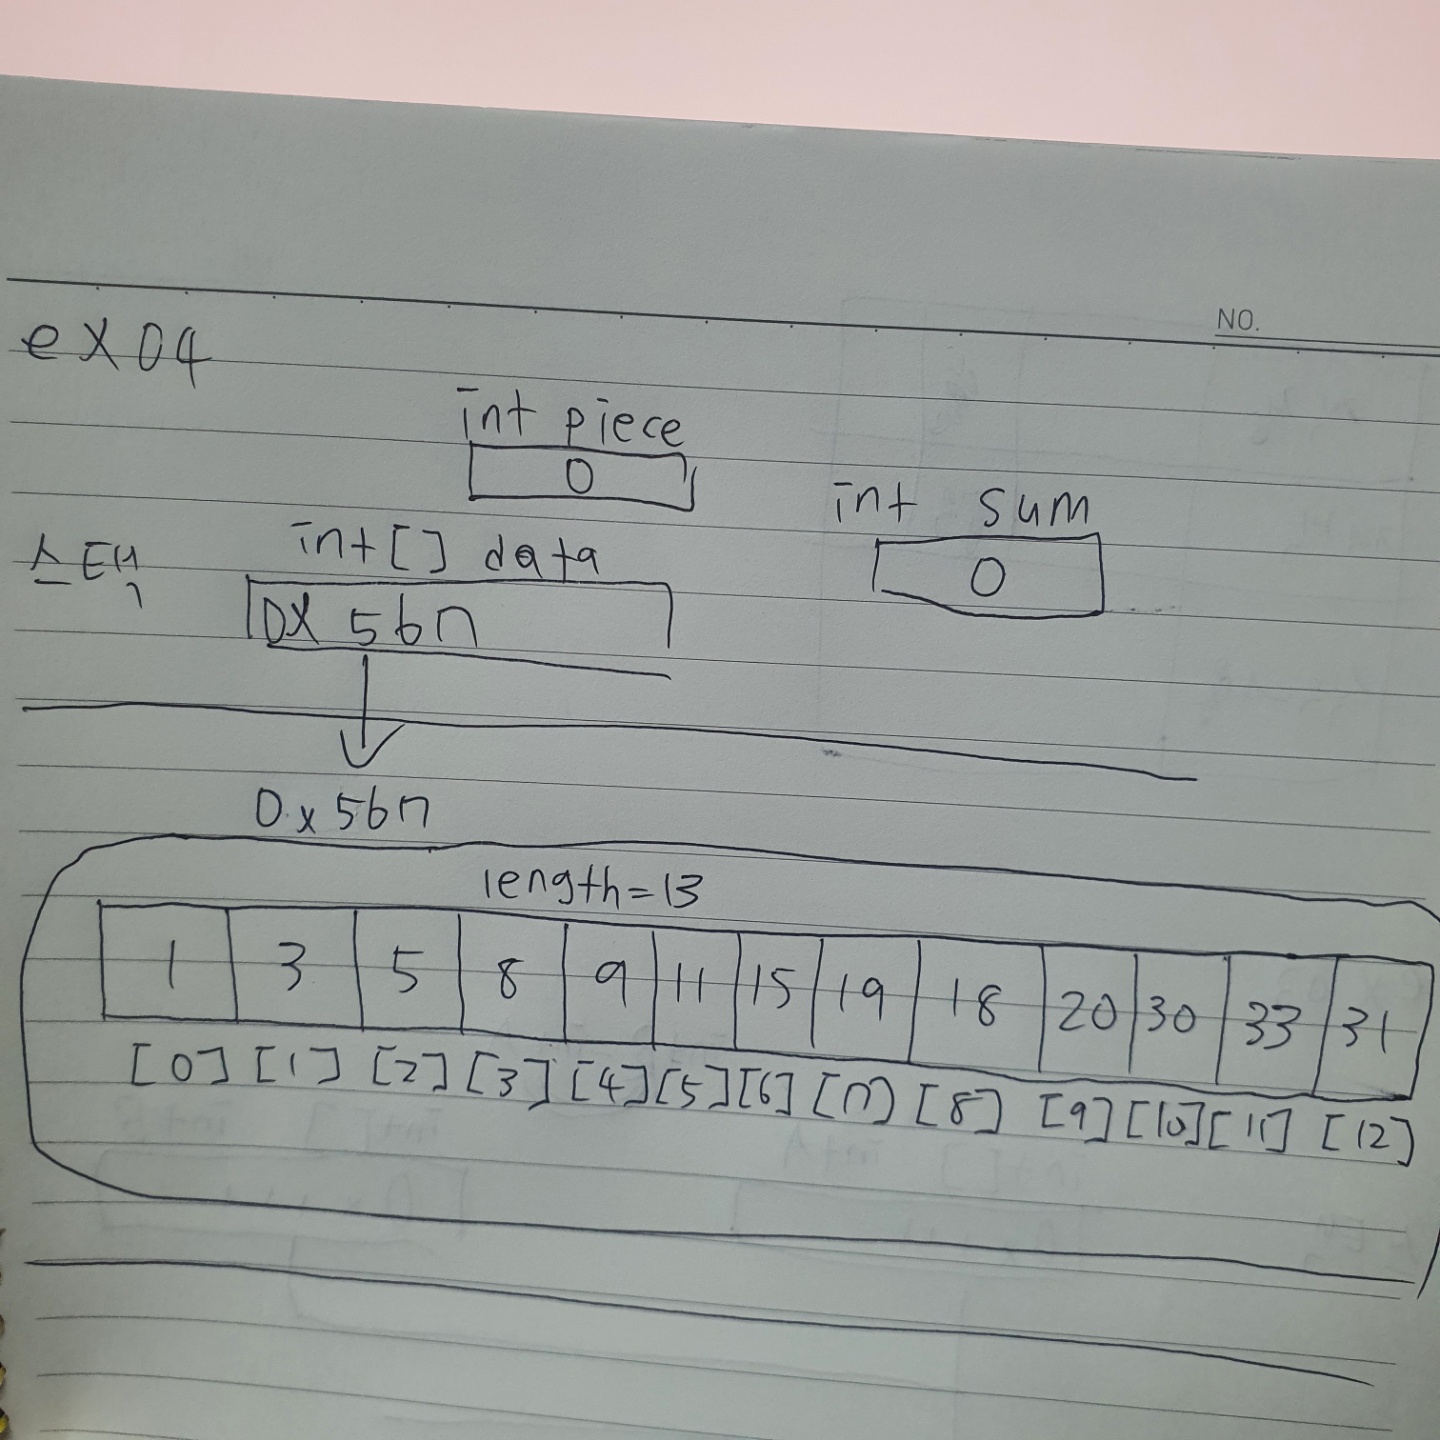 NO.
ex04
int piece
0
int sum
0
스택
int[] data
0x 567
0x567
length=13
1 3 5 8 9 11 15 19 18 20 30 33 31
[0] [1] [2] [3] [4] [5] [6] [7] [8] [9] [10] [11] [12]